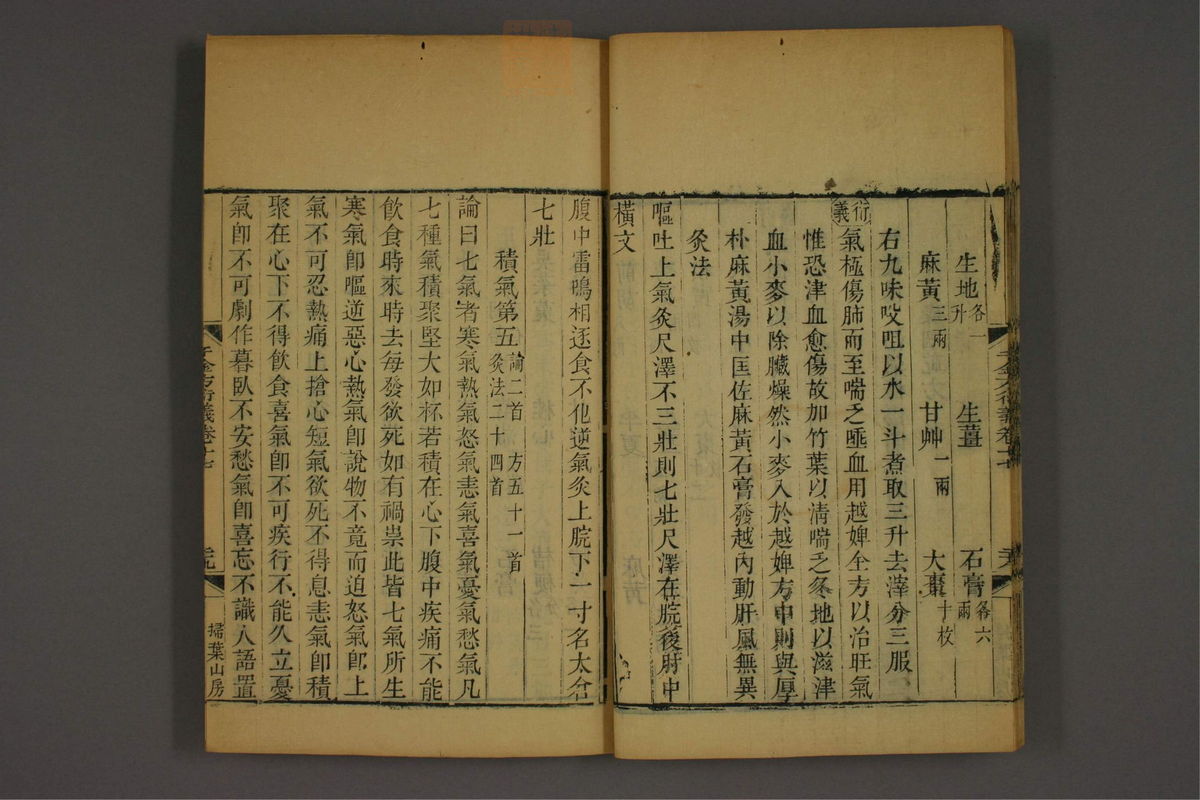 生地各一升 生薑 石膏各六兩
麻黃三兩 甘艸一兩 大棗十枚
右九味㕮咀以水一斗煮取三升去滓分三服
衍義氣極傷肺而至喘乏唾血用越婢全方以治旺氣
惟恐津血愈傷故加竹葉以淸喘乏冬地以滋津
血小麥以除臟燥然小麥入於越婢方中則與厚
朴麻黃湯中匡佐麻黃石膏發越內動肝風無異
灸法
嘔吐上氣灸尺澤不三壯則七壯尺澤在腕後肘中
橫文
腹中雷鳴相逐食不化逆氣灸上脘下一寸名太倉
七壯
積氣第五論二首 方五十一首 灸法二十四首
論曰七氣者寒氣熱氣怒氣恚氣喜氣憂氣愁氣凡
七種氣積聚堅大如杯若積在心下腹中疾痛不能
飲食時來時去每發欲死如有禍祟此皆七氣所生
寒氣卽嘔逆惡心熱氣卽說物不竟而迫怒氣卽上
氣不可忍熱痛上搶心短氣欲死不得息恚氣卽積
聚在心下不得飲食喜氣卽不可疾行不能久立憂
氣卽不可劇作暮臥不安愁氣卽喜忘不識人語置
千金方衍義卷十七
三九
掃葉山房